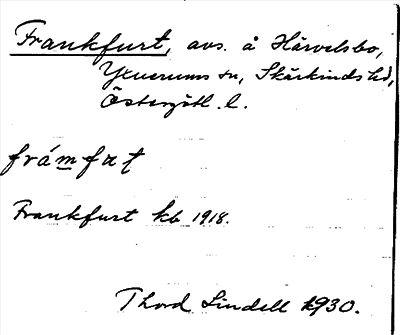 Frankfurt, avs. å Härvelsbo,
Yxnerums sn, Skärkinds hd,
Östergötl. l.
frámfat
Frankfurt kb 1918.
Thord Lindell 1930.